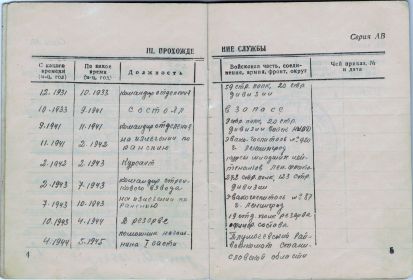 Серия АВ
III. ПРОХОЖДЕ НИЕ СЛУЖБЫ
С какого времени (м-ц, год)
По какое время (м-ц, год)
Должность
Войсковая часть, соединение, армия, фронт, округ
Чей приказ, № и дата
12.1931 10.1933 командир отделения 59 стр. полк, 20 стр. дивизии
10.1933 9.1941 состоял в запасе
9.1941 11.1941 командир отделения стр. полк, 20 стр. дивизии войск НКВД
11.1941 2.1942 на излечении по ранению Эвакогоспиталь г. Ленинград
2.1942 2.1943 Курсант курсы младших лейтенантов Лен. фронта
2.1943 7.1943 командир стрелкового взвода 272 стр. полк, 123 стр. дивизии
7.1943 10.1943 на излечении по ранению Эвакогоспиталь № 87 г. Ленинград
10.1943 4.1944 В резерве 19 отд. полк резерва офицер. состава
4.1944 5.1945 помощник начальника I части райвоенкомат Сталинградской области
4
5